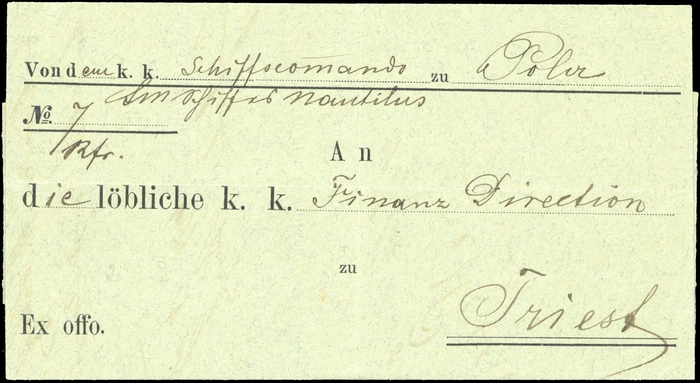 Von dem k. k. Schiffscomando zu Pola
SM Schiffes Nautilus
No. 7
Rfr.
An
die löbliche k. k. Finanz Direction
zu
Triest
Ex offo.